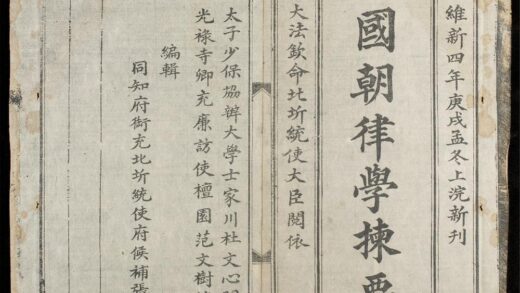 維新四年庚戌孟冬上浣新刊
國朝律學揀要
大法欽命北圻統使大臣閱依
太子少保協辦大學士家川杜文心
光祿寺卿充廉訪使檀園范文樹
編輯
同知府銜充北圻統使府候補張